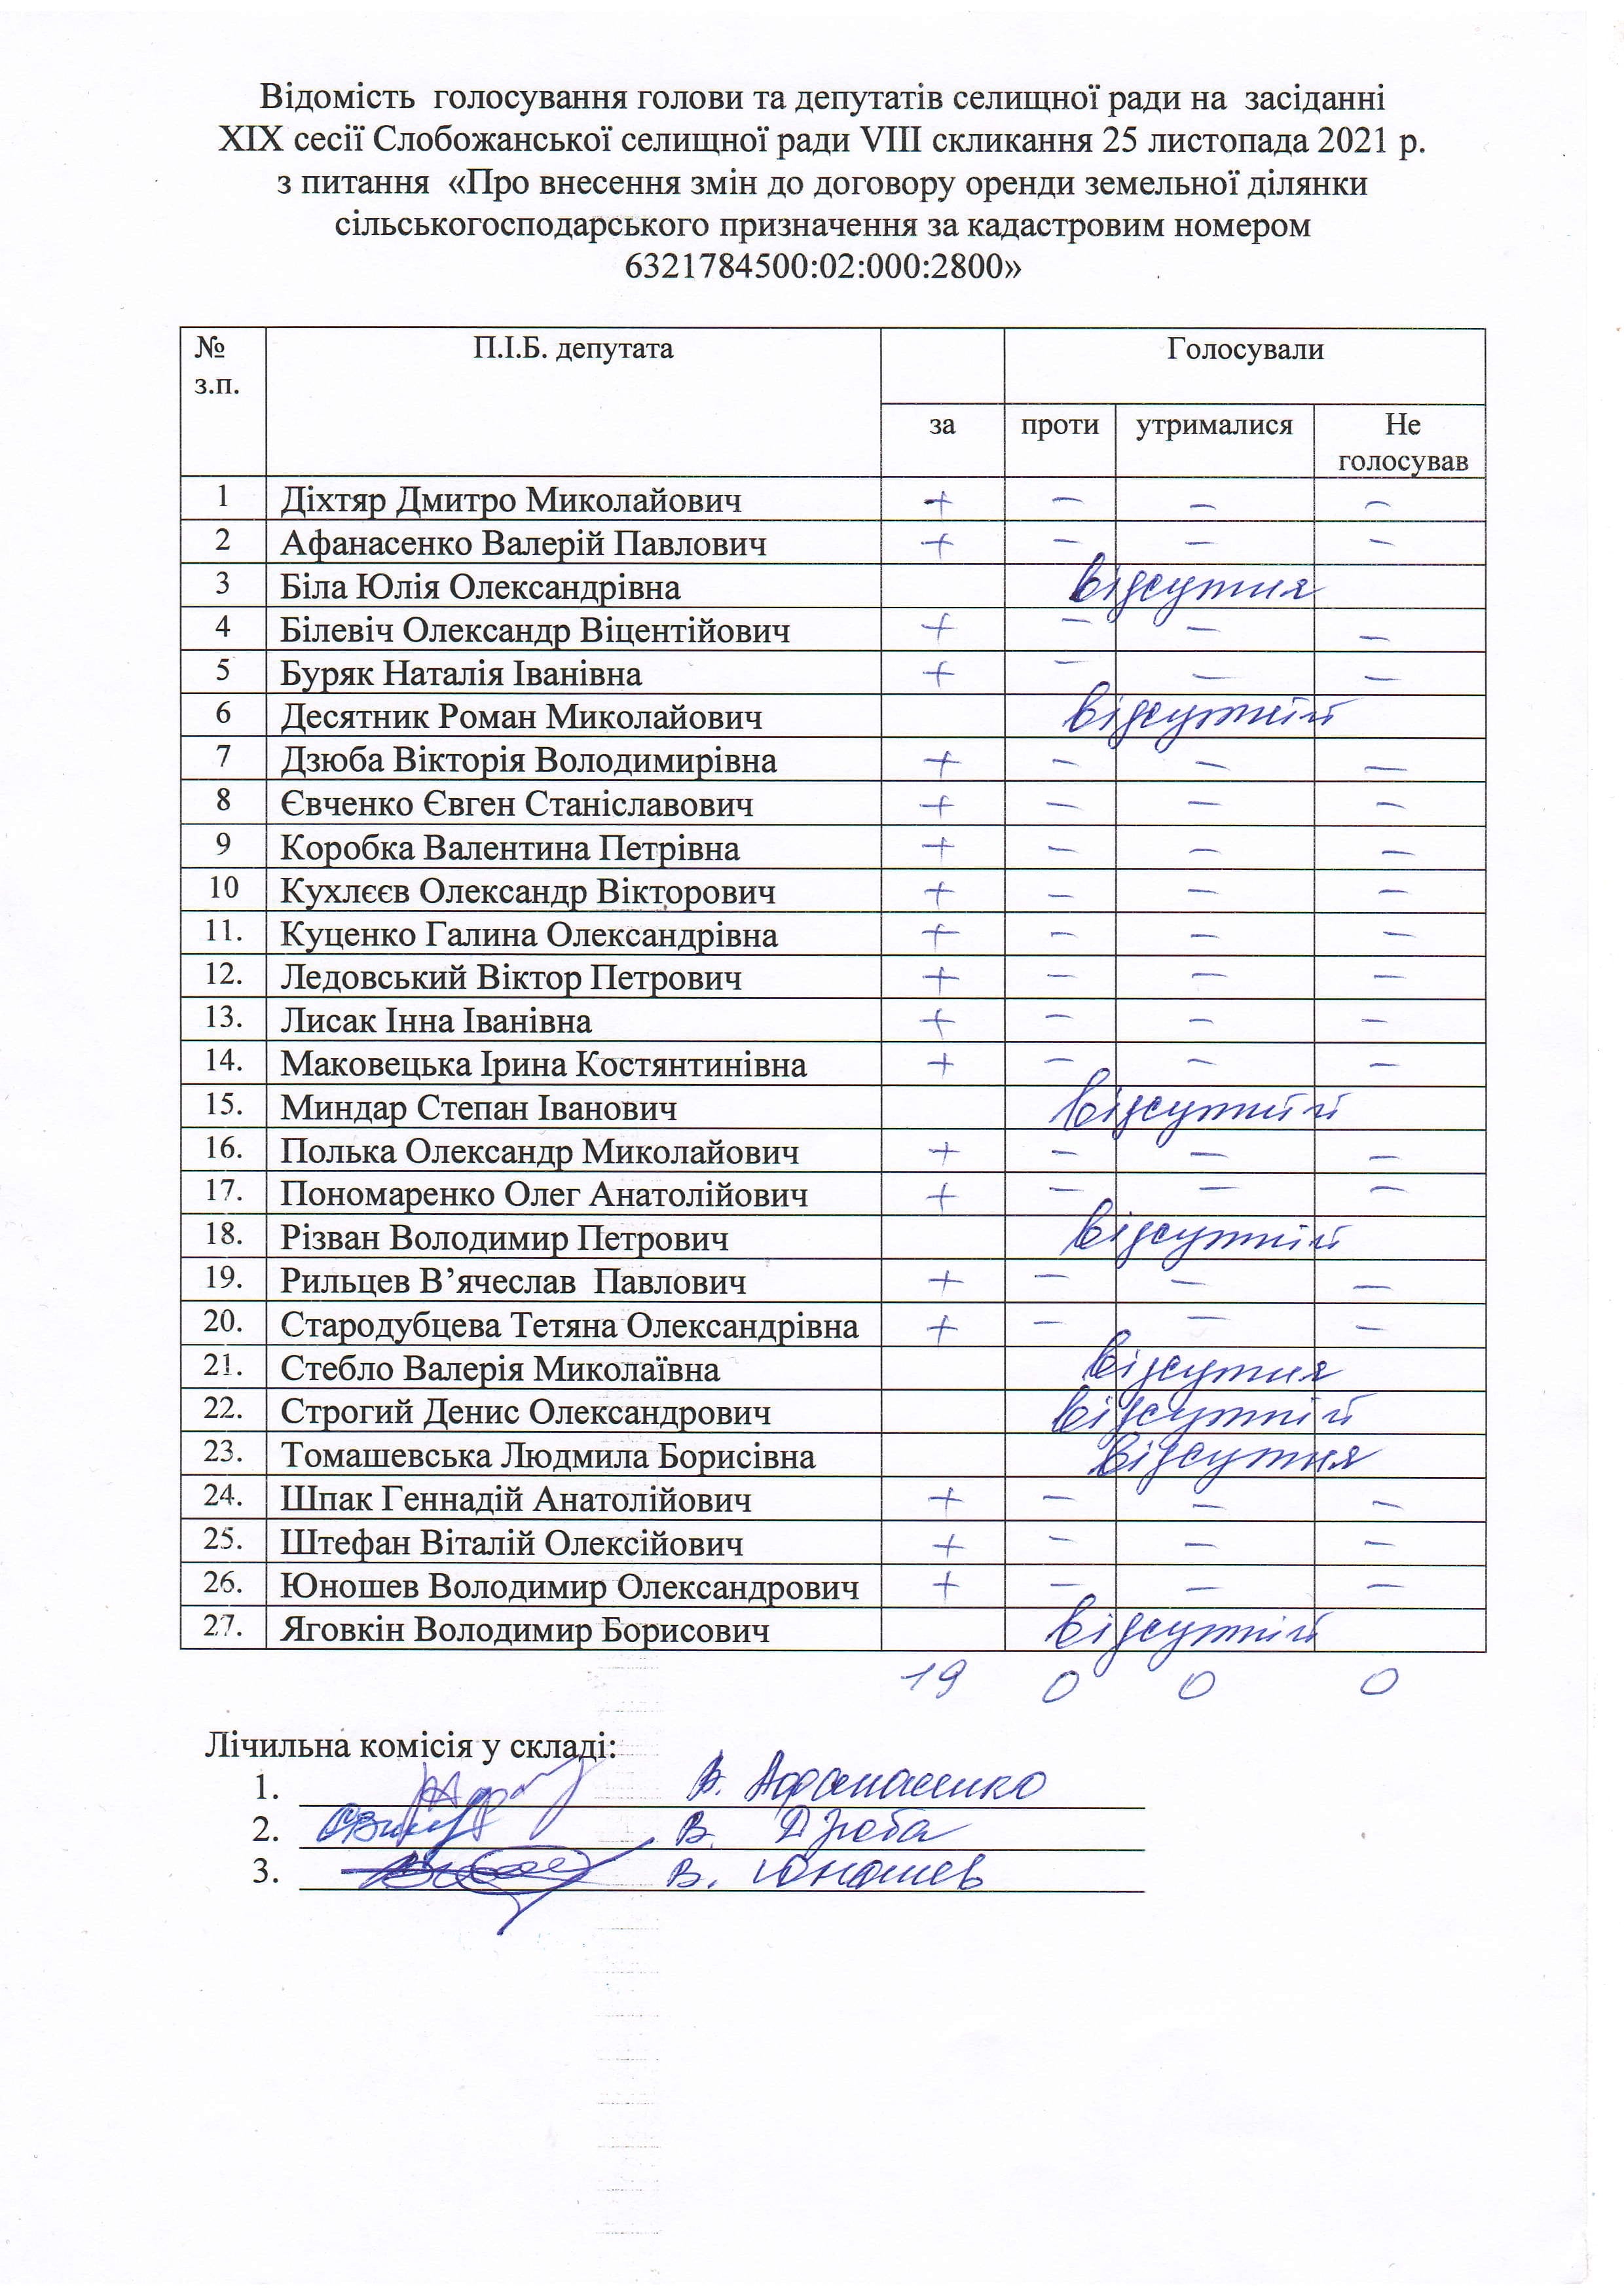 Відомість голосування голови та депутатів селищної ради на засіданні
XIX сесії Слобожанської селищної ради VIII скликання 25 листопада 2021 р.
з питання «Про внесення змін до договору оренди земельної ділянки
сільськогосподарського призначення за кадастровим номером
6321784500:02:000:2800»
№ з.п. П.І.Б. депутата Голосували
за проти утрималися Не голосував
1 Діхтяр Дмитро Миколайович + – – –
2 Афанасенко Валерій Павлович + – – –
3 Біла Юлія Олександрівна відсутня
4 Білевіч Олександр Віцентійович + – – –
5 Буряк Наталія Іванівна + – – –
6 Десятник Роман Миколайович відсутній
7 Дзюба Вікторія Володимирівна + – – –
8 Євченко Євген Станіславович + – – –
9 Коробка Валентина Петрівна + – – –
10 Кухлєєв Олександр Вікторович + – – –
11. Куценко Галина Олександрівна + – – –
12. Ледовський Віктор Петрович + – – –
13. Лисак Інна Іванівна + – – –
14. Маковецька Ірина Костянтинівна + – – –
15. Миндар Степан Іванович відсутній
16. Полька Олександр Миколайович + – – –
17. Пономаренко Олег Анатолійович + – – –
18. Різван Володимир Петрович відсутній
19. Рильцев В’ячеслав Павлович + – – –
20. Стародубцева Тетяна Олександрівна + – – –
21. Стебло Валерія Миколаївна відсутня
22. Строгий Денис Олександрович відсутній
23. Томашевська Людмила Борисівна відсутня
24. Шпак Геннадій Анатолійович + – – –
25. Штефан Віталій Олексійович + – – –
26. Юношев Володимир Олександрович + – – –
27. Яговкін Володимир Борисович відсутній
19 0 0 0
Лічильна комісія у складі:
1. В. Афанасенко
2. В. Дзюба
3. В. Юношев